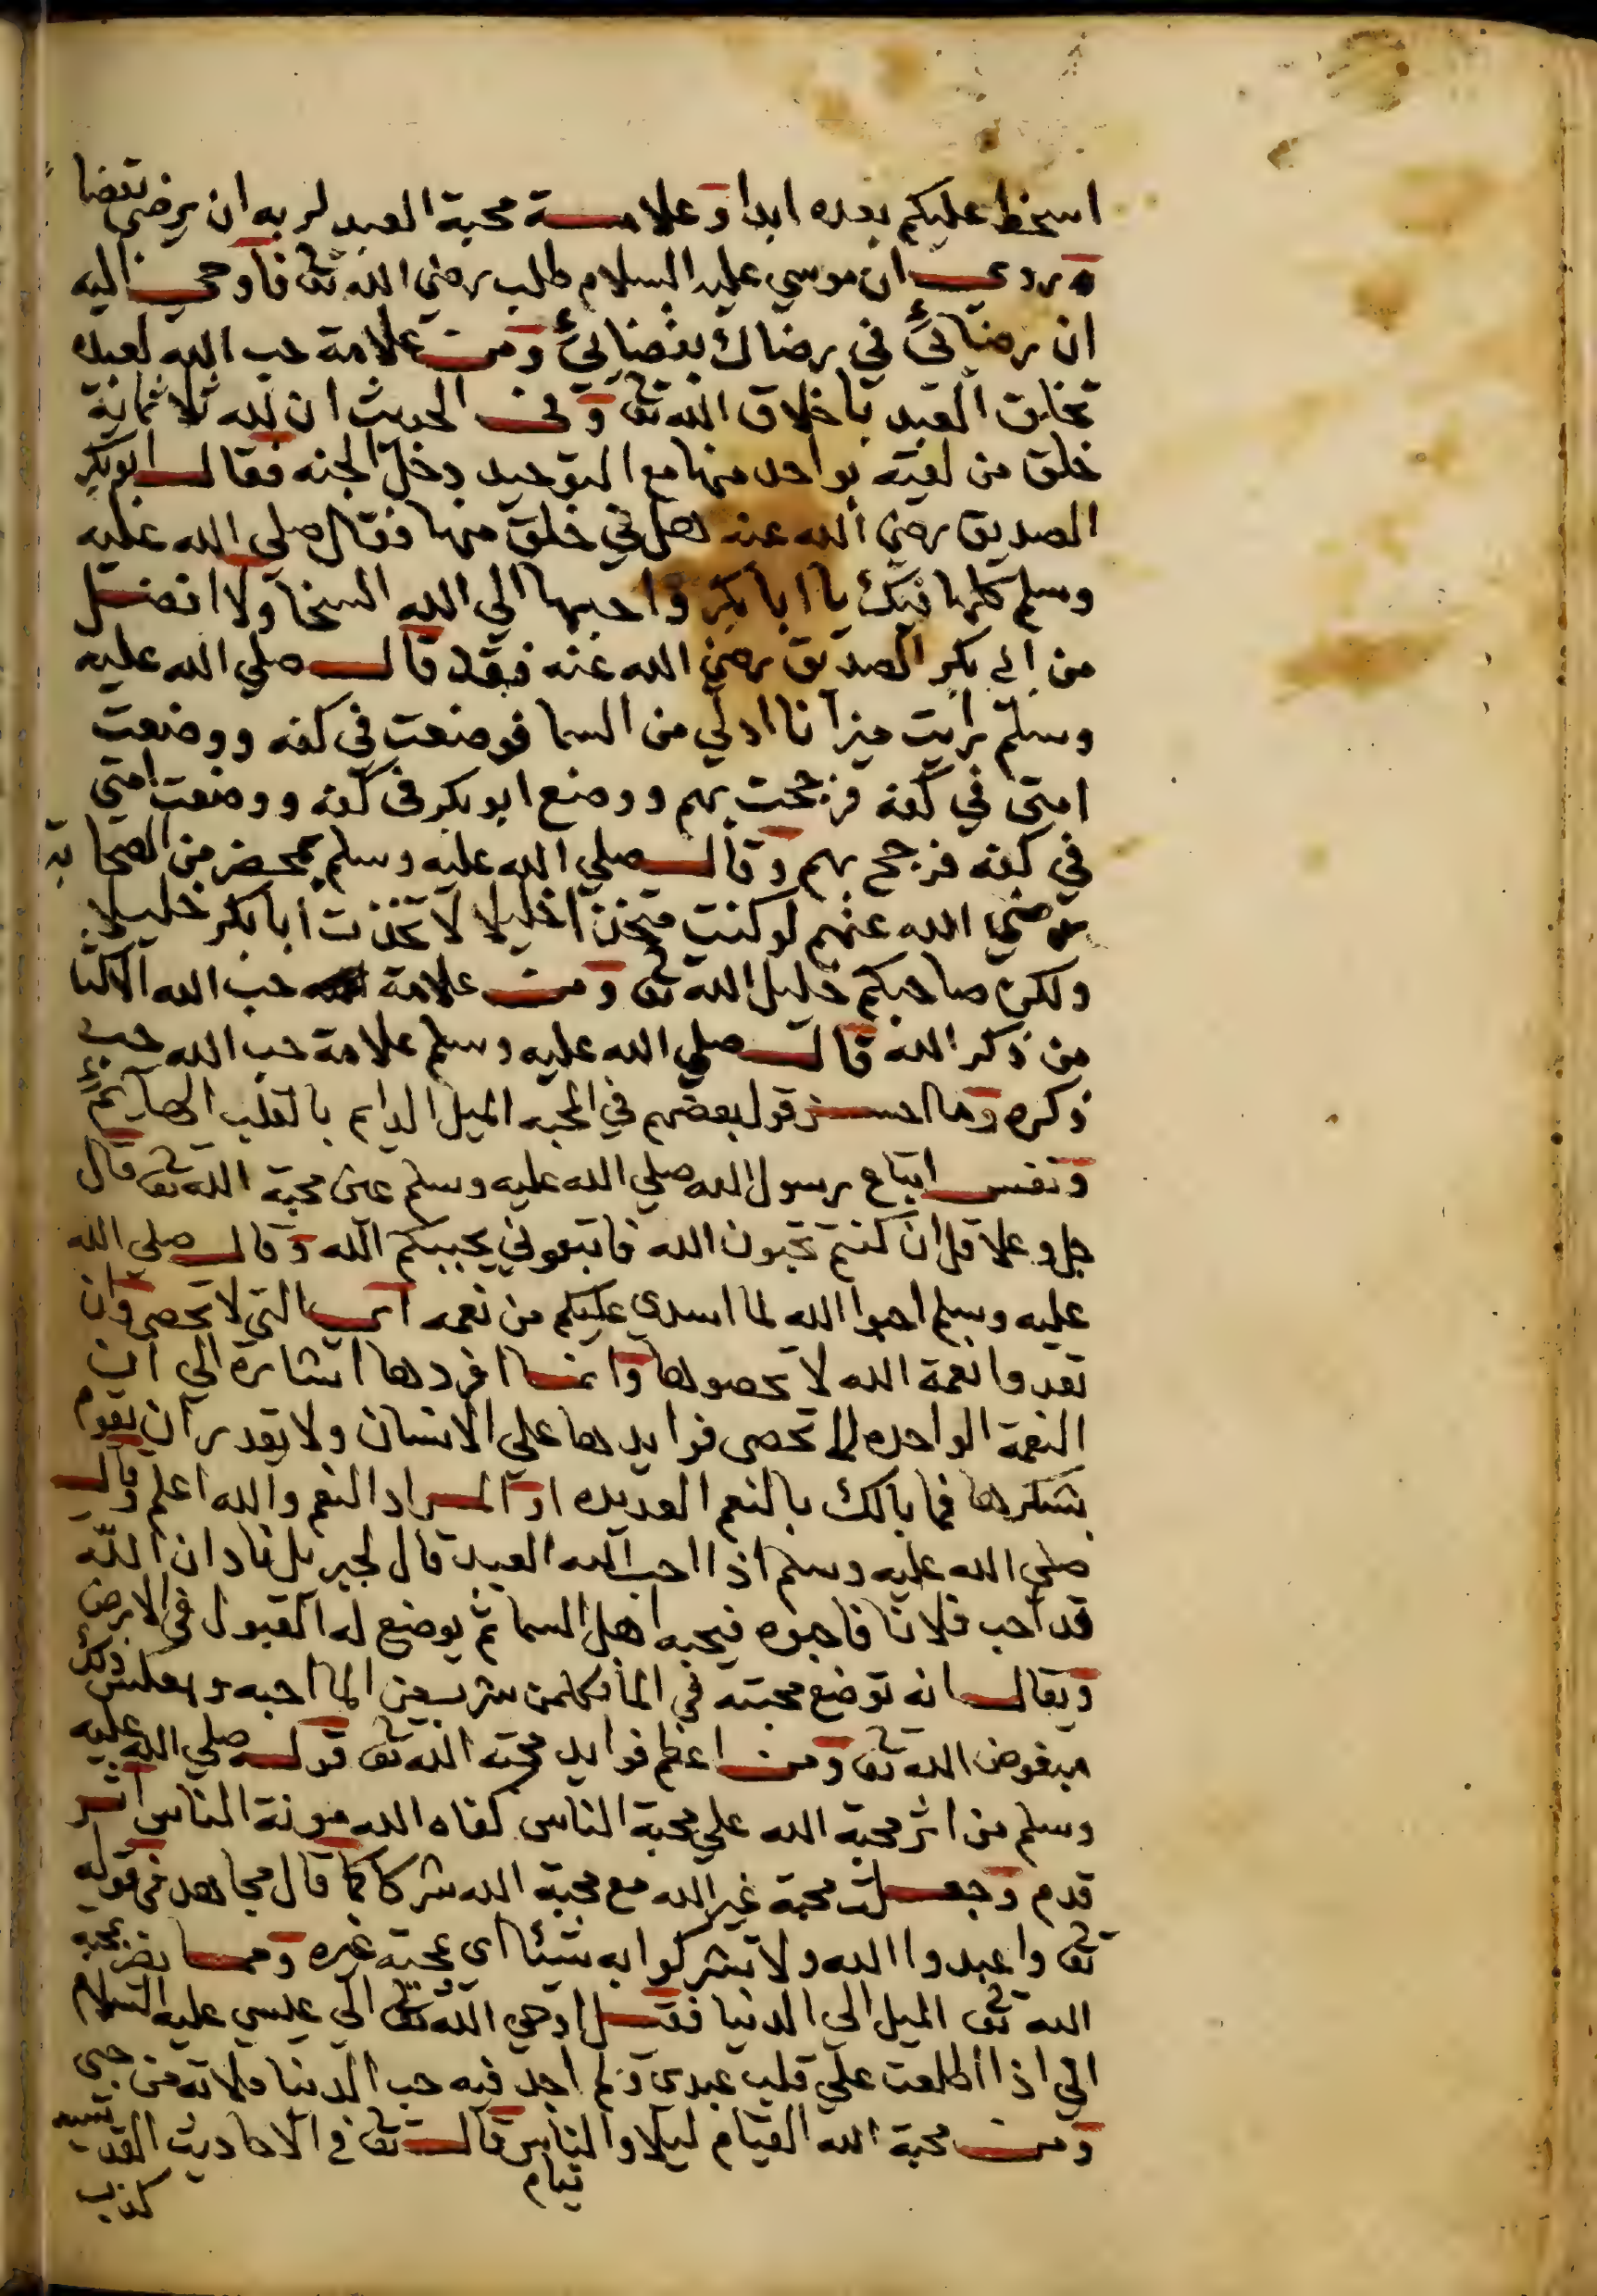 اسخط عليكم بعده ابدا وعلامة محبة العبد لربه ان يرضى بقضا
ه وروي ان موسي عليه السلام طلب رضي الله تع فاوحي اليه
ان رضائي في رضاك بقضائي ومن علامة حب الله لعبده
تخلق العبد باخلاق الله تع وفي الحديث ان لله ثلاثماية
خلق من لقيه بواحد منها مع التوحيد دخل الجنه فقال ابو بكر
الصديق رضي الله عنه هل في خلق منها فقال صلي الله عليه
وسلم كلها فيك يا ابا بكر واحبها الي الله السخا ولا افضل
من ابي بكر الصديق رضي الله عنه فقد قال صلي الله عليه
وسلم رايت ميزانا ادلي من السما فوضعت في كفه ووضعت
امتي في كفه فرجحت بهم ووضع ابو بكر في كفه ووضعت امتي
في كفه فرجح بهم وقال صلي الله عليه وسلم بمحضر من الصحابة
رضي الله عنهم لو كنت متخذا خليلا لاتخذت ابا بكر خليلا
ولكن صاحبكم خليل الله تع ومن علامة حب الله الاكثا
من ذكر الله قال صلي الله عليه وسلم علامة حب الله حب
ذكره وما احسن قول بعضهم في المحبه الميل الدايم بالقلب الهايم
ونفس اتباع رسول الله صلي الله عليه وسلم عين محبة الله تع قال
جل وعلا قل ان كنتم تحبون الله فاتبعوني يحببكم الله وقال صلي الله
عليه وسلم احبوا الله لما اسدي عليكم من نعمه اي التي لا تحصي وان
تعدوا نعمة الله لا تحصوها وانما افردها اشارة الي ان
النعمة الواحده لا تحصى فوايدها علي الانسان ولا يقدر ان يقوم
بشكرها فما بالك بالنعم العديده او المراد النعم والله اعلم وقال
صلي الله عليه وسلم اذا احب الله العبد قال لجبريل ناد ان الله
قد احب فلانا فاحبوه فيحبه اهل السما ثم يوضع له القبول في الارض
ويقال انه توضع محبته في الما فكلمن شرب من الما احبه وبعكس ذلك
مبغوض الله تع ومن اعظم فوايد محبة الله تع قوله صلي الله عليه
وسلم من اثر محبة الله علي محبة الناس كفاه الله مونة الناس اثر
قدم وجعلت محبة غير الله مع محبة الله شركا كما قال مجاهد في قوله
تع واعبدوا الله ولا تشركوا به شيئا اي محبة غيره ومما يضر بمحبة
الله تع الميل الي الدنيا فقيل اوحي الله تع الي عيسي عليه السلام
اني اذا اطلعت علي قلب عبدي ولم اجد فيه حب الدنيا ملاته من حبي
ومن محبة الله القيام ليلا والناس نيام قال تع في الاحاديث القدسيه
كذب